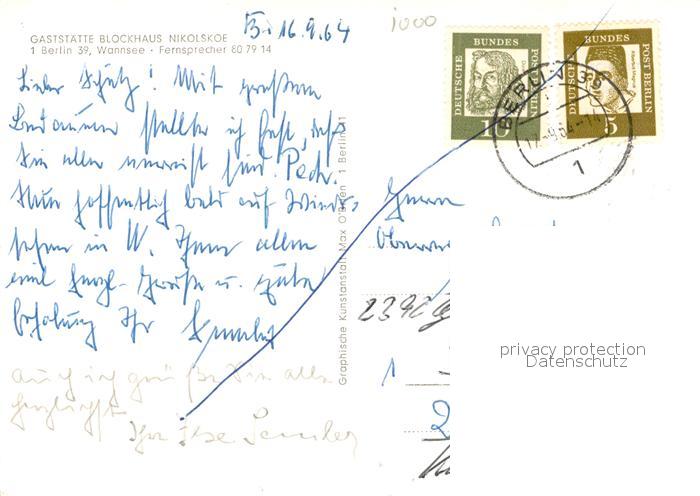 GASTSTÄTTE BLOCKHAUS NIKOLSKOE
1 Berlin 39, Wannsee · Fernsprecher 80 79 14
B. 16.9.64
1000
Lieber Schütz! Mit großem
Bedauern stellte ich fest, daß
Sie alle verreist sind. Pech.
Nun hoffentlich bald auf Wieder-
sehen in W. Ihnen allen
viel herzl. Grüße u. gute
Erholung Ihr
Auch ich grüße Sie alle
herzlichst
Ihre Ilse
Graphische Kunstanstalt Max O'Brien 1 Berlin 31
DEUTSCHE BUNDES POST BERLIN
10
DEUTSCHE BUNDES POST BERLIN
Albertus Magnus
5
BERLIN 39
17.-9.64-14
1
Herrn
1
privacy protection
Datenschutz